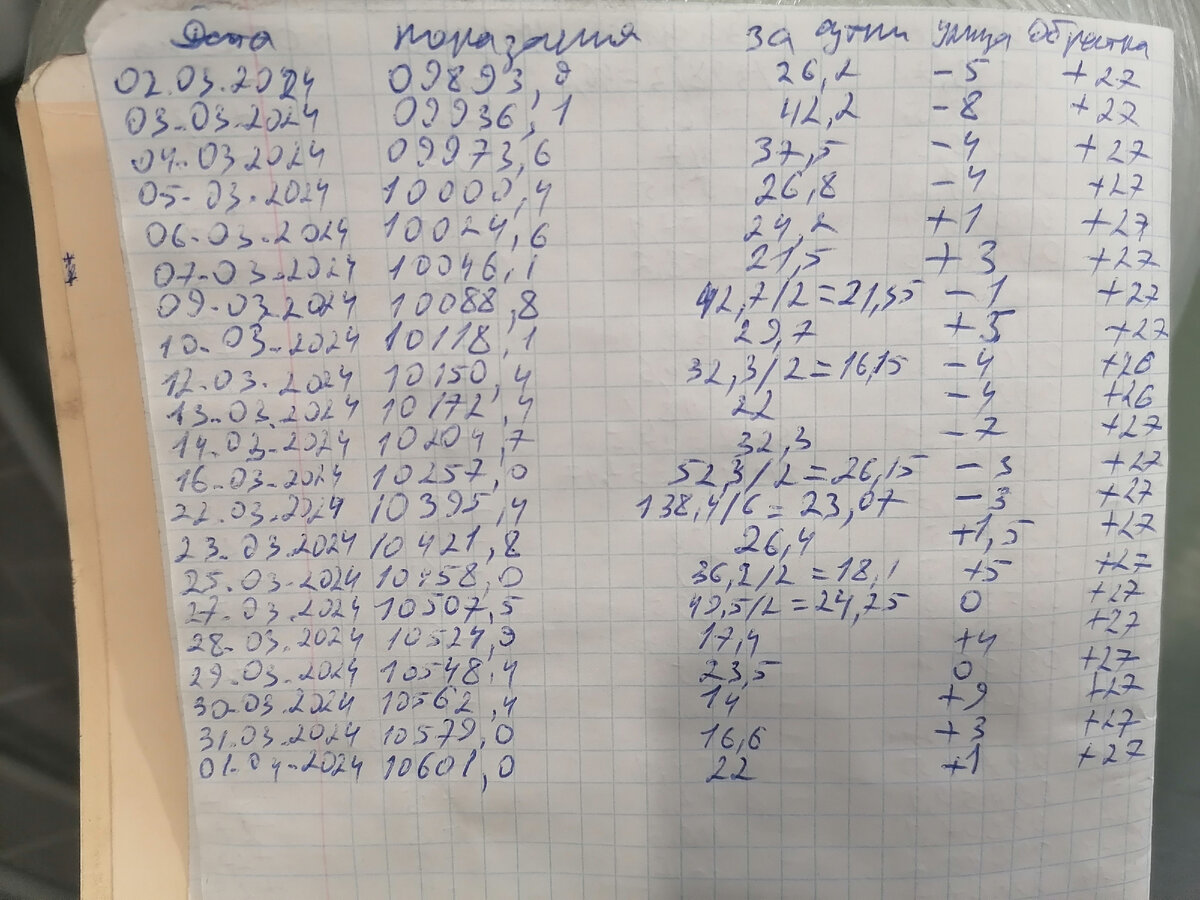 Дата показания за сутки улица Обратка
02.03.2024 09893,9 26,2 -5 +27
03.03.2024 09936,1 42,2 -8 +27
04.03.2024 09973,6 37,5 -4 +27
05.03.2024 10000,4 26,8 -4 +27
06.03.2024 10024,6 24,2 +1 +27
07.03.2024 10046,1 21,5 +3 +27
09.03.2024 10088,8 42,7/2=21,35 -1 +27
10.03.2024 10118,1 29,7 +5 +27
12.03.2024 10150,4 32,3/2=16,15 -4 +26
13.03.2024 10172,4 22 -4 +26
14.03.2024 10204,7 32,3 -7 +27
16.03.2024 10257,0 52,3/2=26,15 -3 +27
22.03.2024 10395,4 138,4/6=23,07 -3 +27
23.03.2024 10421,8 26,4 +1,5 +27
25.03.2024 10458,0 36,2/2=18,1 +5 +27
27.03.2024 10507,5 49,5/2=24,75 0 +27
28.03.2024 10524,9 17,4 +4 +27
29.03.2024 10548,4 23,5 0 +27
30.03.2024 10562,4 14 +9 +27
31.03.2024 10579,0 16,6 +3 +27
01.04.2024 10601,0 22 +1 +27